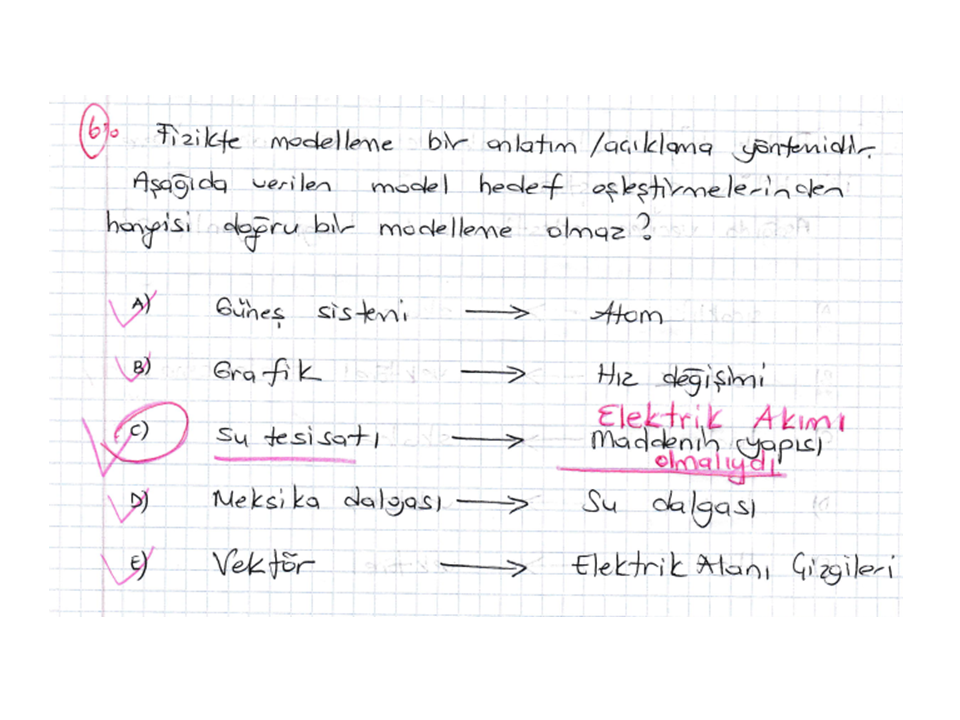 6) Fizikte modelleme bir anlatım /açıklama yöntemidir.
Aşağıda verilen model hedef eşleştirmelerinden
hangisi doğru bir modelleme olmaz?
A) Güneş sistemi → Atom
B) Grafik → Hız değişimi
Elektrik Akımı
C) Su tesisatı → Maddenin yapısı
olmalıydı
D) Meksika dalgası → Su dalgası
E) Vektör → Elektrik Alanı Çizgileri